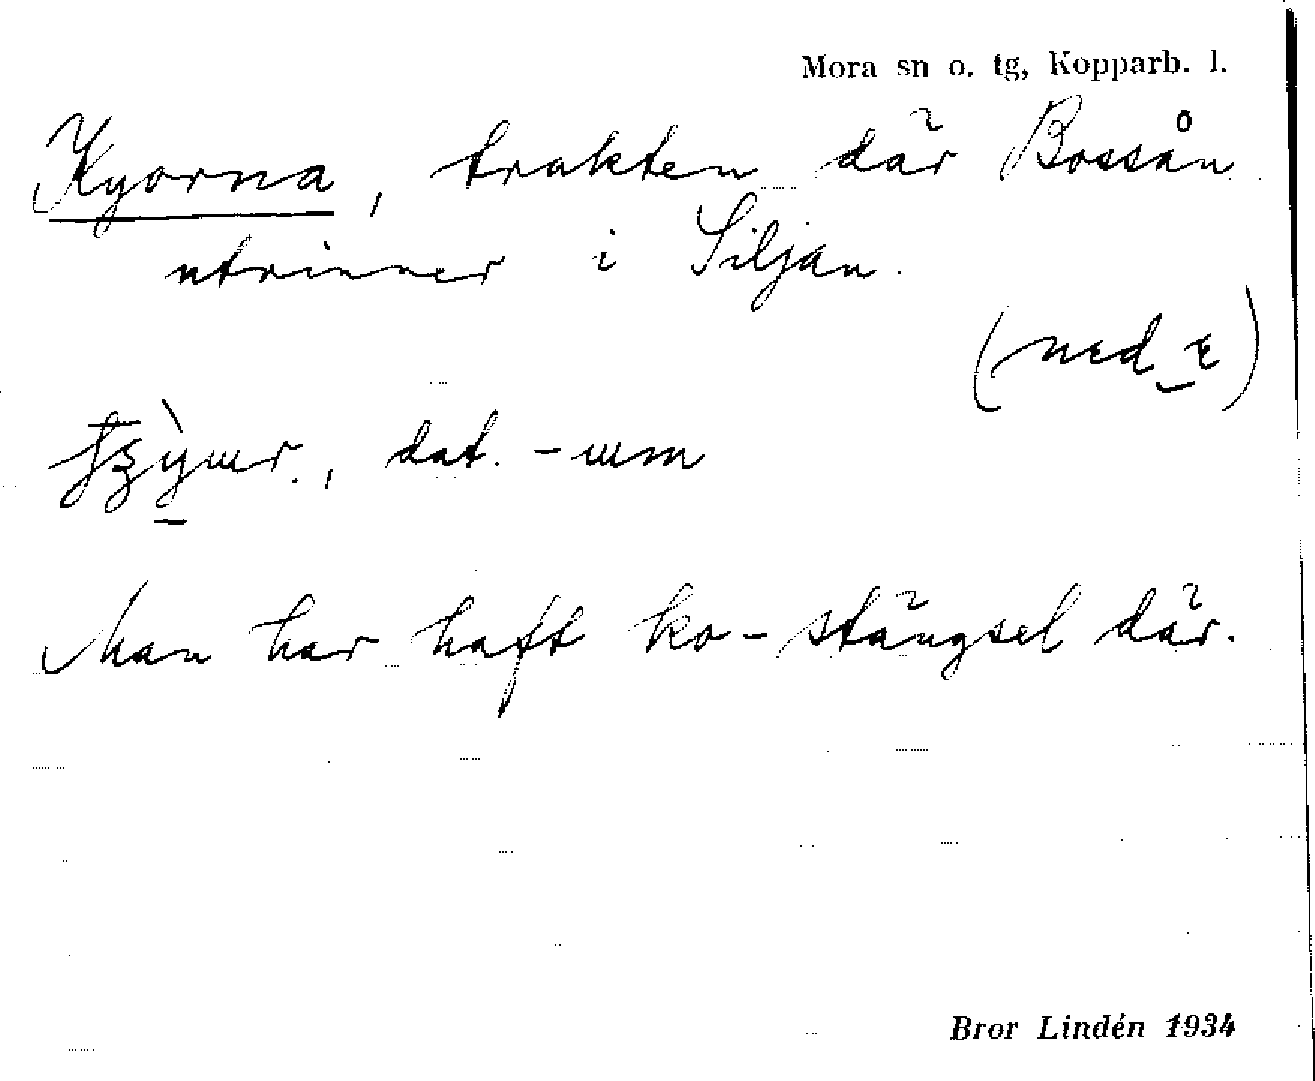 Mora sn o. tg, Kopparb. l.
Kyorna, trakten där Bossån
utrinner i Siljan.
dat. -
Man har haft ko-stängsel där.
Bror Lindén 1934